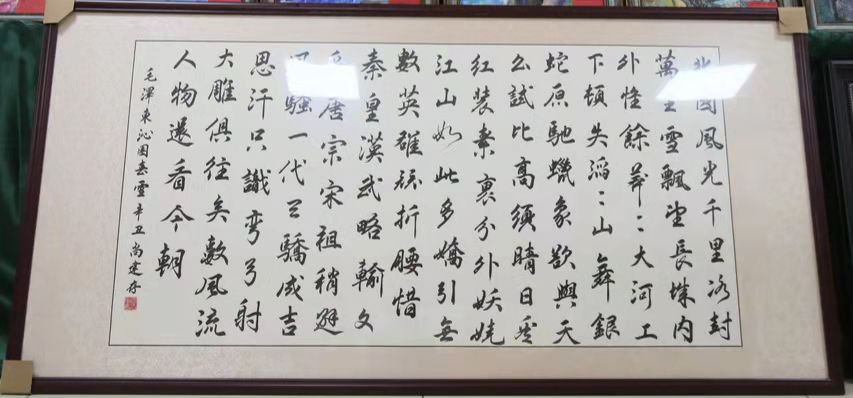 北國風光千里冰封
萬里雪飄望長城内
外惟餘莽〻大河上
下頓失滔〻山舞銀
蛇原馳蠟象欲與天
公試比高須晴日看
红装素裹分外妖娆
江山如此多嬌引無
數英雄競折腰惜
秦皇漢武略輸文
采唐宗宋祖稍遜
風騷一代天驕成吉
思汗只識彎弓射
大雕俱往矣數風流
人物還看今朝
毛澤東沁园春雪辛丑尚建存